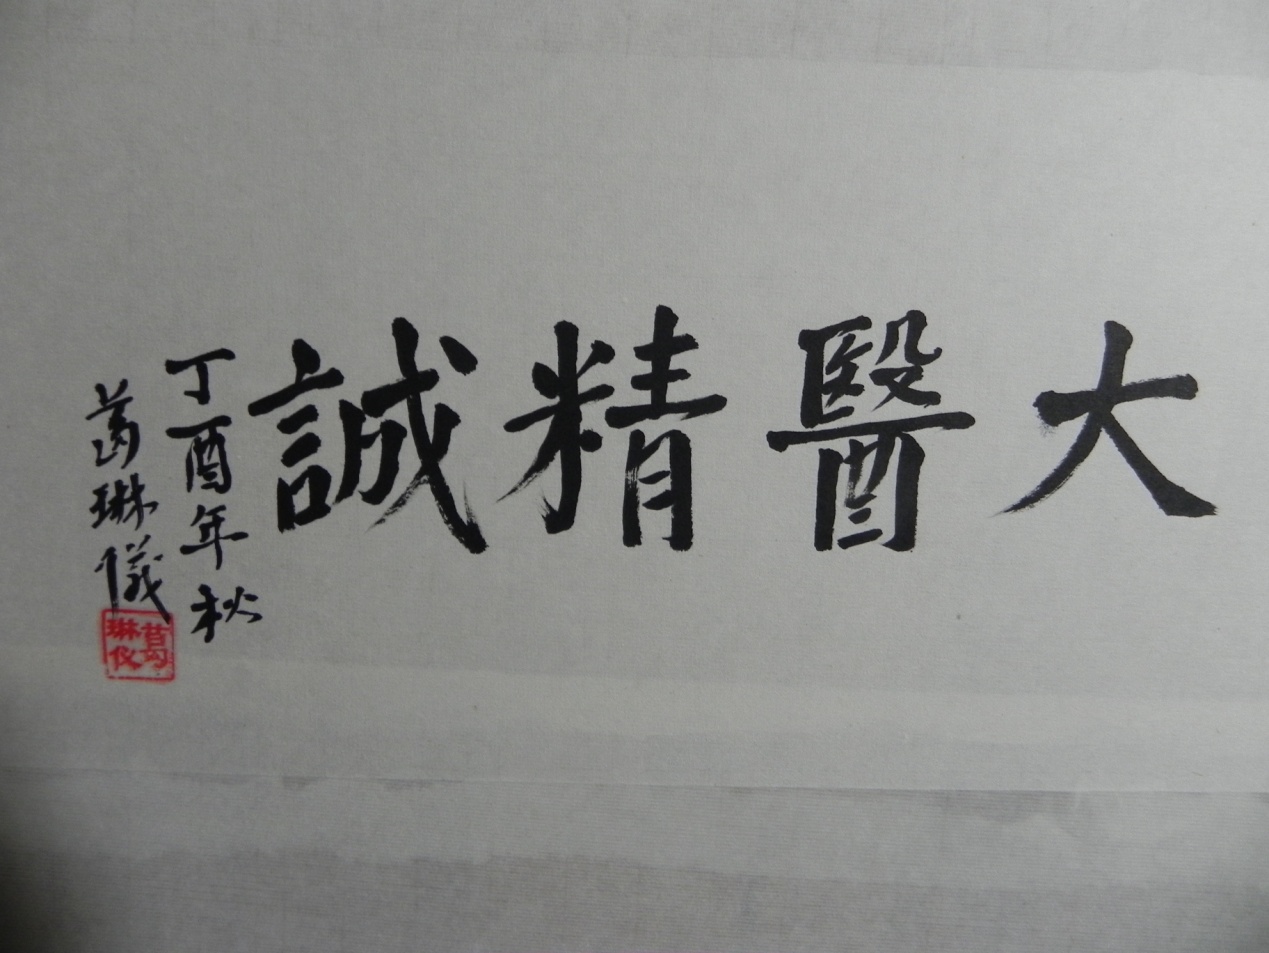 大醫精誠
丁酉年秋
葛琳儀
葛琳仪